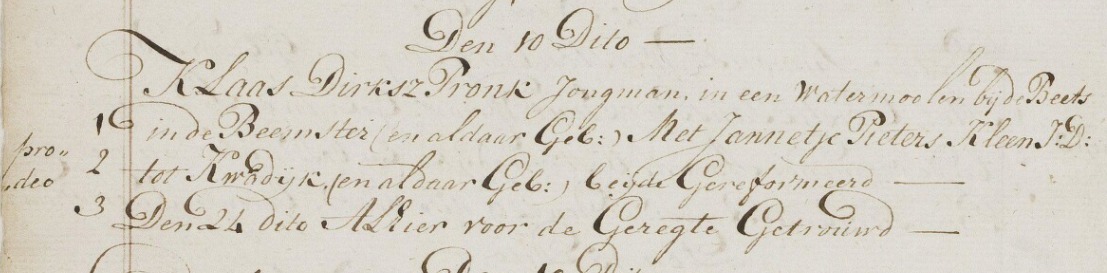 Den 10 Dito —
Klaas Dirksz Pronk Jongman in een Watermoolen bij de Beets
1 in de Beemster (en aldaar Geb:) Met Jannetje Pieters Kleen J:D:
pro„ 2 tot Kwadijk, (en aldaar Geb:) beijde Gereformeerd —
deo
3 Den 24 dito Alhier voor de Geregte Getrouwd —